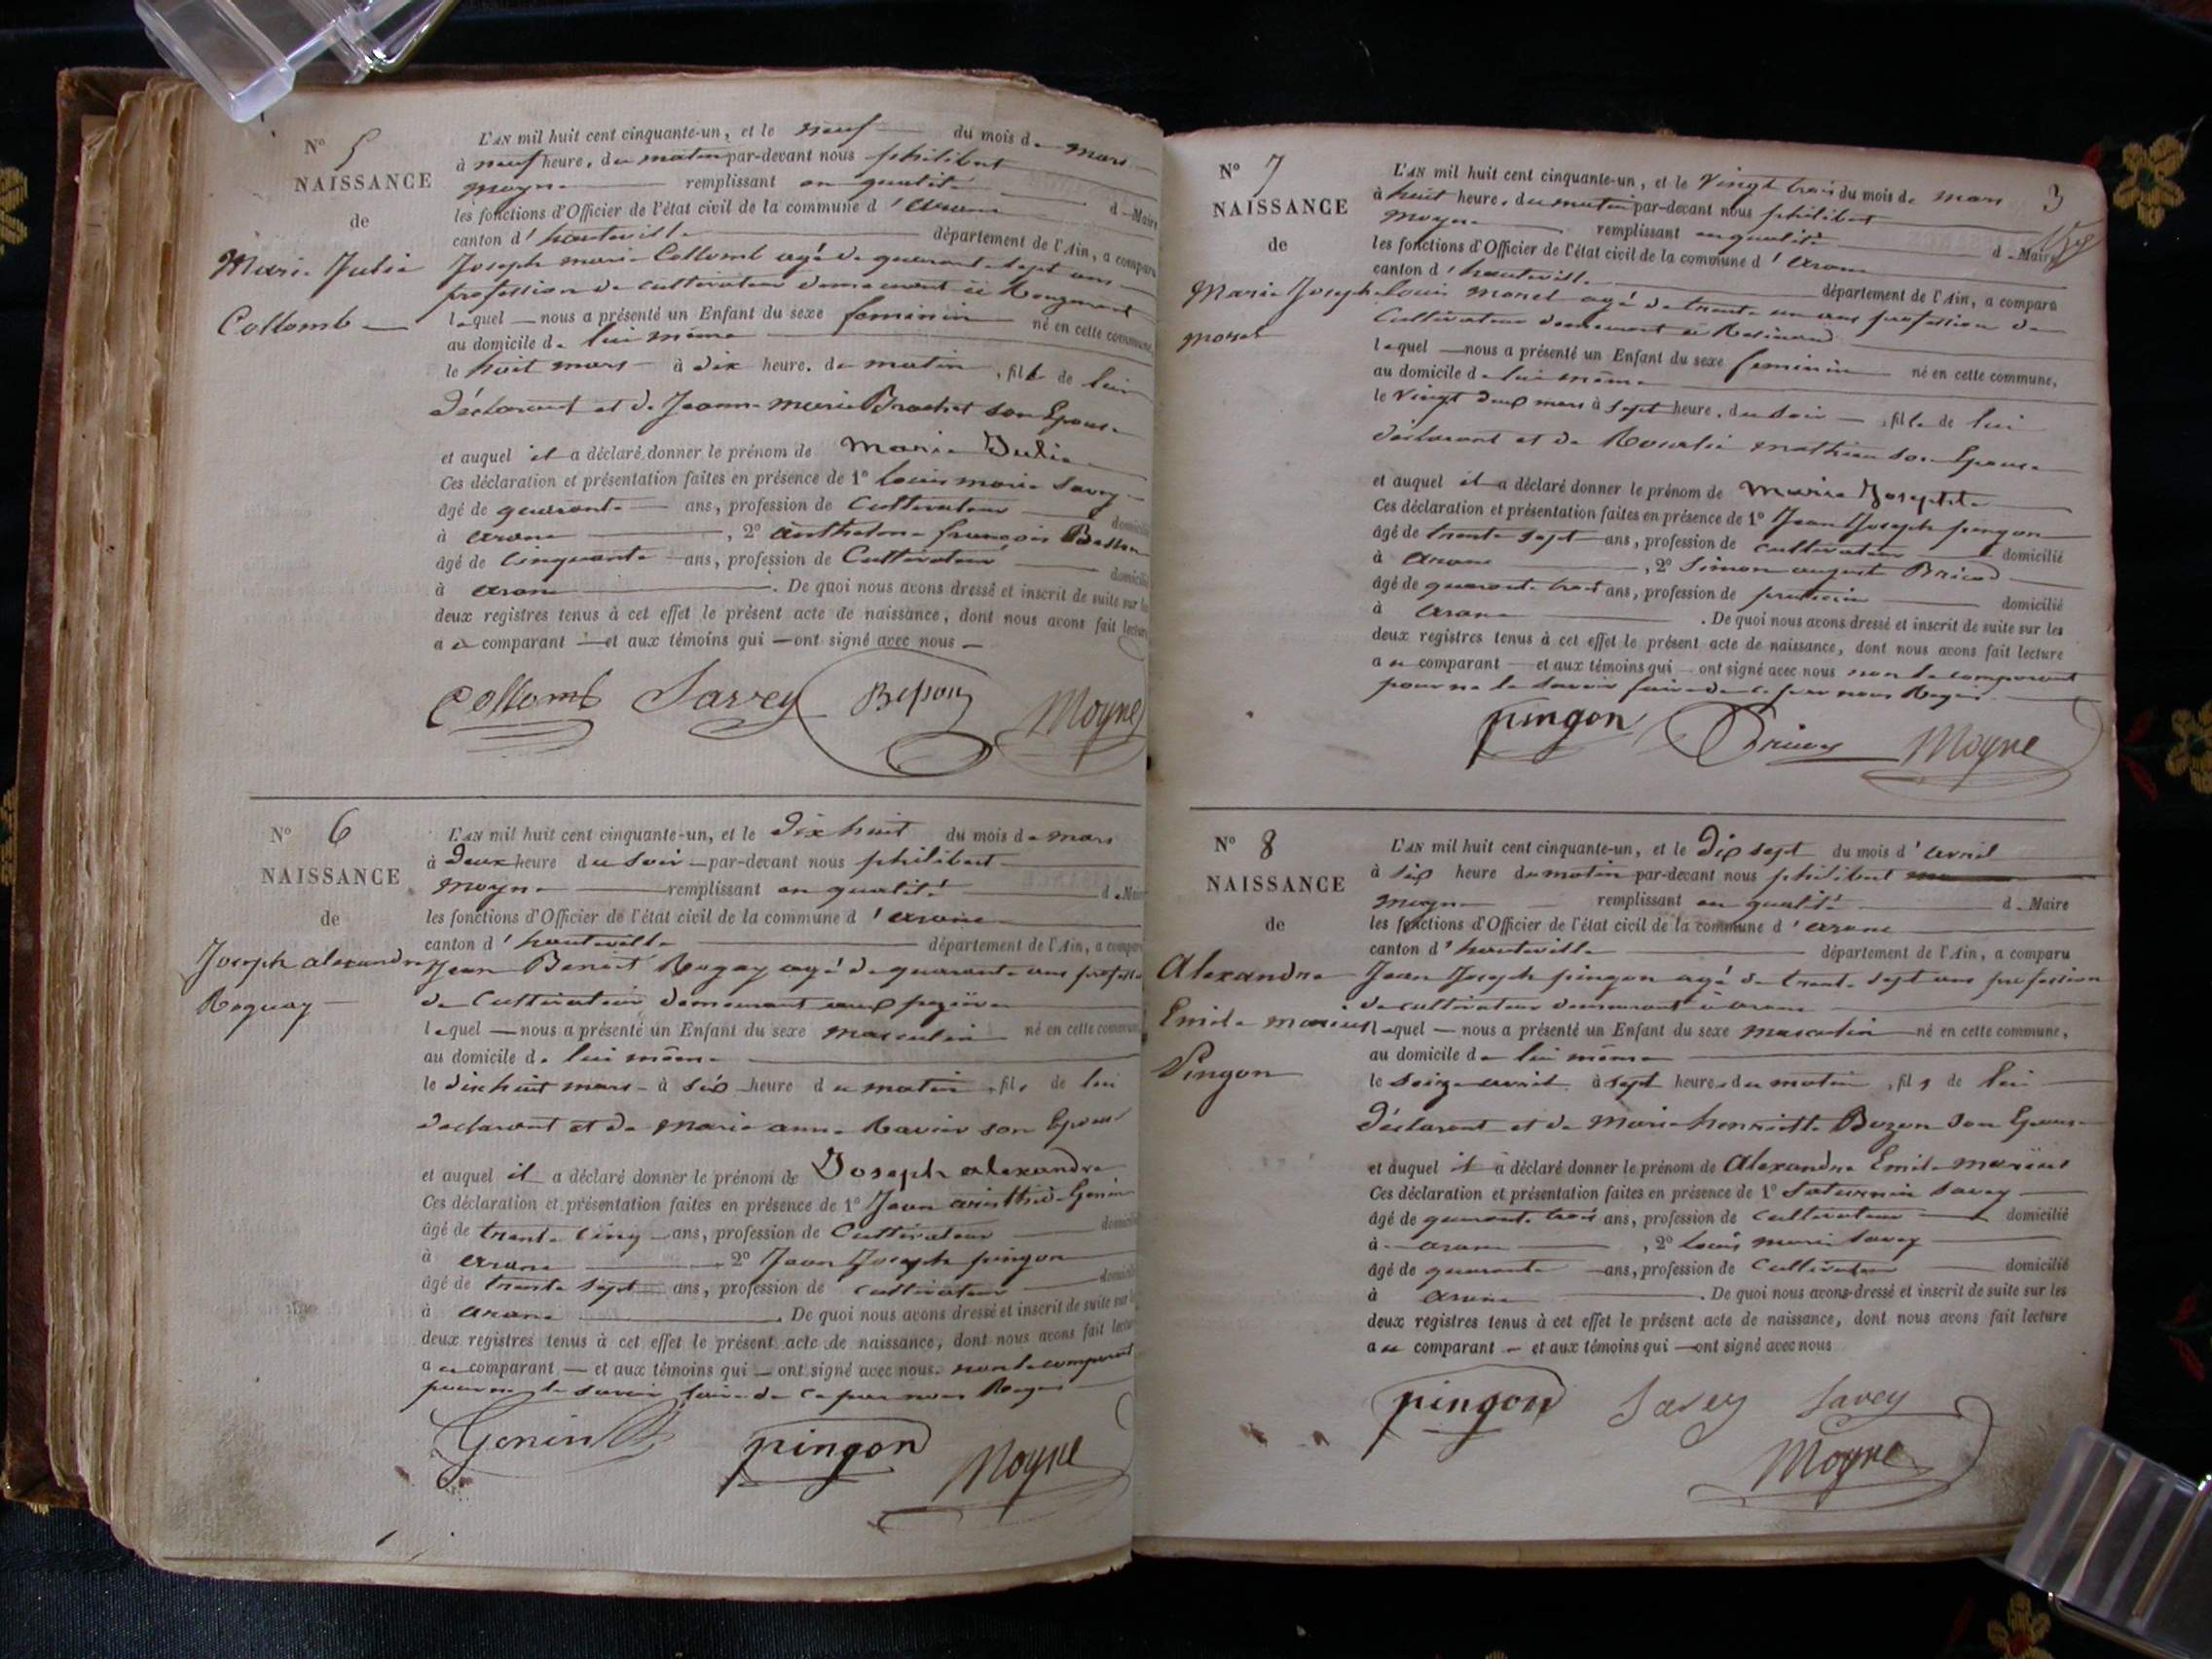 N° 5
NAISSANCE
de
Marie Julie
Collomb
L'AN mil huit cent cinquante-un, et le neuf du mois de mars
à neuf heures du matin par-devant nous philibert
moyne remplissant en qualité de Maire
les fonctions d'Officier de l'état civil de la commune d'arane
canton d'hauteville département de l'Ain, a comparu
Joseph marie Collomb agé de quarante sept ans
profession de cultivateur demeurant à Rougemont
lequel nous a présenté un Enfant du sexe feminin né en cette commune,
au domicile de lui même
le huit mars à dix heures du matin, fille de lui
déclarant et de Jeanne marie Brochet son Epouse
et auquel il a déclaré donner le prénom de Marie Julie
Ces déclaration et présentation faites en présence de 1° louis marie Savey
âgé de quarante ans, profession de Cultivateur domicilié
à arane, 2° anthelme françois
âgé de Cinquante ans, profession de Cultivateur domicilié
à arane. De quoi nous avons dressé et inscrit de suite sur les
deux registres tenus à cet effet le présent acte de naissance, dont nous avons fait lecture
au comparant et aux témoins qui ont signé avec nous
Collomb Savey Moyne
N° 6
NAISSANCE
de
Joseph alexandre
Roguay
L'AN mil huit cent cinquante-un, et le Dix huit du mois de mars
à Deux heure du Soir par-devant nous philibert
moyne remplissant en qualité de Maire
les fonctions d'Officier de l'état civil de la commune d'arane
canton d'hauteville département de l'Ain, a comparu
Jean Benoit Rogay agé de quarante ans profession
de Cultivateur demeurant aux pezières
lequel nous a présenté un Enfant du sexe masculin né en cette commune
au domicile de lui même
le dix huit mars à six heure du matin, fils de lui
declarant et de Marie anne Ravier son Epouse
et auquel il a déclaré donner le prénom de Joseph alexandre
Ces déclaration et présentation faites en présence de 1° Jean Genin
âgé de trente cinq ans, profession de Cultivateur domicilié
à arane 2° Jean Joseph pingon
âgé de trente sept ans, profession de cultivateur domicilié
à arane. De quoi nous avons dressé et inscrit de suite sur les
deux registres tenus à cet effet le présent acte de naissance, dont nous avons fait lecture
au comparant et aux témoins qui ont signé avec nous. non le comparant
pour ne le savoir faire de ce par nous Requis
Genin pingon Moyne
3
N° 7
NAISSANCE
de
Marie Joseph
morel
L'AN mil huit cent cinquante-un, et le Vingt trois du mois de mars
à huit heures du matin par-devant nous philibert
moyne remplissant en qualité de Maire
les fonctions d'Officier de l'état civil de la commune d'arane
canton d'hauteville département de l'Ain, a comparu
louis morel agé de trente un ans profession de
Cultivateur demeurant à Resinand
lequel nous a présenté un Enfant du sexe feminin né en cette commune,
au domicile de lui même
le Vingt deux mars à sept heures du soir, fille de lui
déclarant et de Rosalie mathieu son Epouse
et auquel il a déclaré donner le prénom de Marie Josephte
Ces déclaration et présentation faites en présence de 1° Jean Joseph pingon
âgé de trente sept ans, profession de cultivateur domicilié
à arane, 2° Simon auguste
âgé de quarante trois ans, profession de praticien domicilié
à arane. De quoi nous avons dressé et inscrit de suite sur les
deux registres tenus à cet effet le présent acte de naissance, dont nous avons fait lecture
au comparant et aux témoins qui ont signé avec nous non le comparant
pour ne le savoir faire de ce par nous Requis
pingon Moyne
N° 8
NAISSANCE
de
Alexandre
Emile marius
Pingon
L'AN mil huit cent cinquante-un, et le Dix sept du mois d'avril
à six heure du matin par-devant nous philibert
moyne remplissant en qualité de Maire
les fonctions d'Officier de l'état civil de la commune d'arane
canton d'hauteville département de l'Ain, a comparu
Jean Joseph pingon agé de trente sept ans profession
de cultivateur demeurant à arane
lequel nous a présenté un Enfant du sexe masculin né en cette commune,
au domicile de lui même
le Seize avril à sept heures du matin, fils de lui
déclarant et de Marie henriette Bozon son Epouse
et auquel il a déclaré donner le prénom de Alexandre Emile marius
Ces déclaration et présentation faites en présence de 1° Saturnin Savey
âgé de quarante trois ans, profession de cultivateur domicilié
à arane, 2° louis marie Savey
âgé de quarante ans, profession de Cultivateur domicilié
à arane. De quoi nous avons dressé et inscrit de suite sur les
deux registres tenus à cet effet le présent acte de naissance, dont nous avons fait lecture
au comparant et aux témoins qui ont signé avec nous
pingon Savey Savey
Moyne